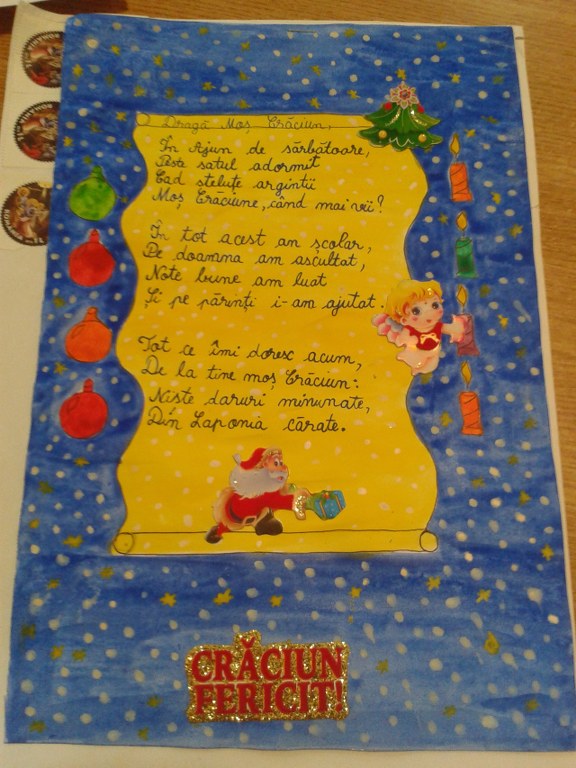 Dragă Moș Crăciun,
În Ajun de sărbătoare,
Peste satul adormit
Cad steluțe argintii
Moș Crăciune, când mai vii?
În tot acest an școlar,
De doamna am ascultat,
Note bune am luat
Și pe părinți i-am ajutat.
Tot ce îmi doresc acum,
De la tine moș Crăciun:
Niște daruri minunate,
Din Laponia cărate.
CRĂCIUN
FERICIT!